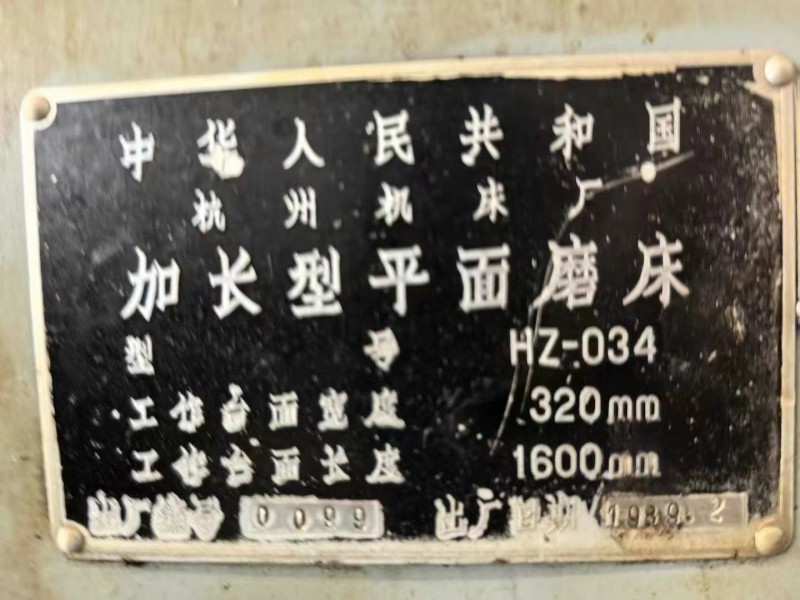 中华人民共和国
杭州机床厂
加长型平面磨床
型号 HZ-034
工作台面宽度 320mm
工作台面长度 1600mm
出厂编号 0099 出厂日期 1989.2